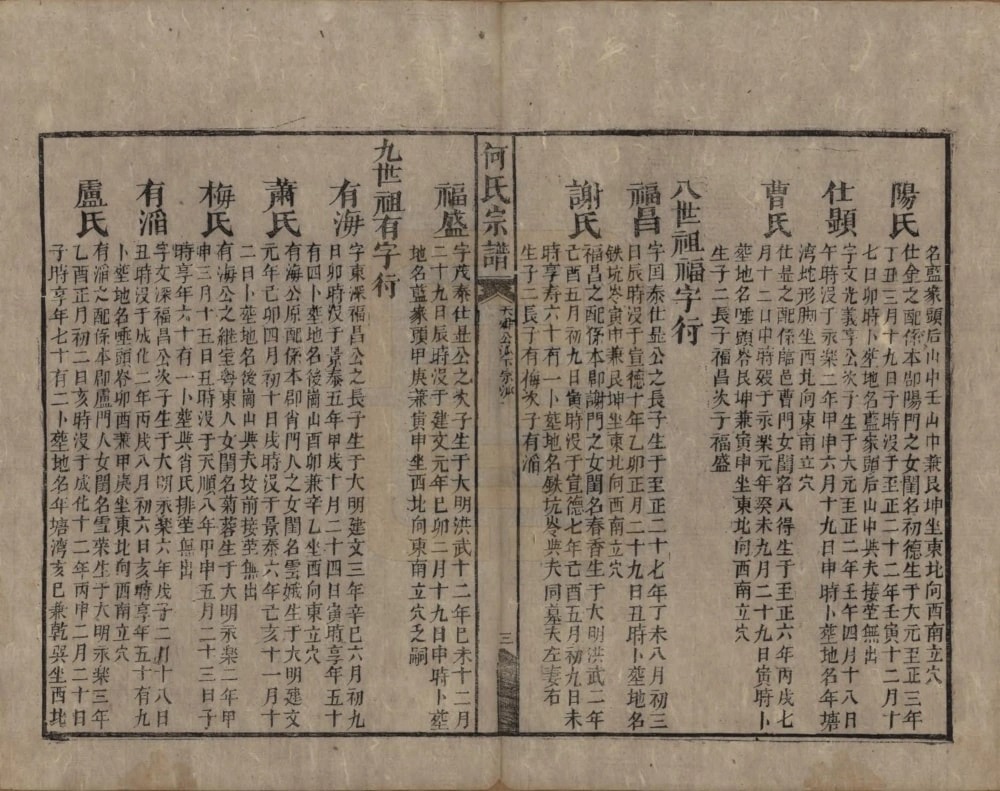 名藍家頭后山中壬山巾兼艮坤坐東北向西南立穴
陽氏
仕金之配係本郡陽門之女閨名初德生于大元至正三年
丁丑三月十九日寅時沒于至正二十二年壬寅十二月十
七日卯時卜塟地名藍家頭后山中與夫接塋無出
仕顯
字文光義亨公次子生于大元至正二年壬午四月十八日
午時沒于永樂二年甲申六月十九日申時卜塟地名年塘
湾虵形脚坐西北向東南立穴
曹氏
仕显之配係郡邑曹門女閨名八得生于至正六年丙戌七
月十二日申時殁于永樂元年癸未九月二十九日寅時卜
塟地名唾頭岺艮坤兼寅申坐東北向西南立穴
生子二長子福昌次子福盛
八世祖福字行
福昌
字国泰仕显公之長子生于至正二十七年丁未八月初三
日辰時沒于宣德十年乙卯正月二十九日丑時卜塟地名
鉄坑岺寅申兼艮坤坐東北向西南立穴
謝氏
福昌之配係本郡謝門之女閨名春香生于大明洪武二年
己酉五月初九日寅時沒于宣德七年己酉五月初九日未
時享寿六十有一卜塟地名鉄坑岺與夫同墓夫左妻右
生子二長子有梅次子有湎
何氏宗譜
三
福盛
字茂泰仕显公之次子生于大明洪武十二年巳未十二月
二十九日辰時沒于建文元年巳卯二月十九日申時卜塟
地名藍家頭甲庚兼寅申坐西北向東南立穴乏嗣
九世祖有字行
有海
字東深福昌公之長子生于大明建文三年辛巳六月初九
日卯時沒于景泰五年甲戌十月二十四日寅時享年五十
有四卜塟地名後崗山酉卯兼辛乙坐西向東立穴
蕭氏
有海公原配係本郡肖門人之女閨名雲娥生于大明建文
元年己卯四月初十日戌時沒于景泰六年乙亥十一月十
二日卜塟地名後崗山與夫坟前接塋無出
梅氏
有海公之継室粵東人女閨名菊蓉生于大明永樂二年甲
申三月十五日丑時沒于天順八年甲申五月二十三日子
時享年六十有一卜塟與肖氏排塋無出
有湎
字文深福昌公次子生于大明永樂六年戊子二月十八日
丑時沒于成化二年丙戌八月初六日亥時享年五十有九
卜塟地名唾頭岺卯酉兼甲庚坐東北向西南立穴
盧氏
有湎之配係本郡盧門人女閨名雪荣生于大明永樂三年
乙酉正月初二日亥時沒于成化十二年丙申二月二十日
子時享年七十有二卜塟地名年塘湾亥巳兼乾巽坐西北